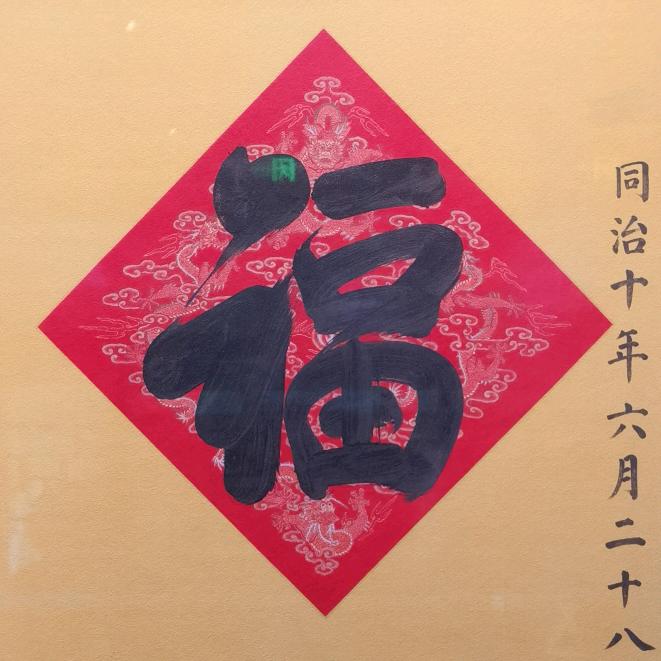 福
同治十年六月二十八